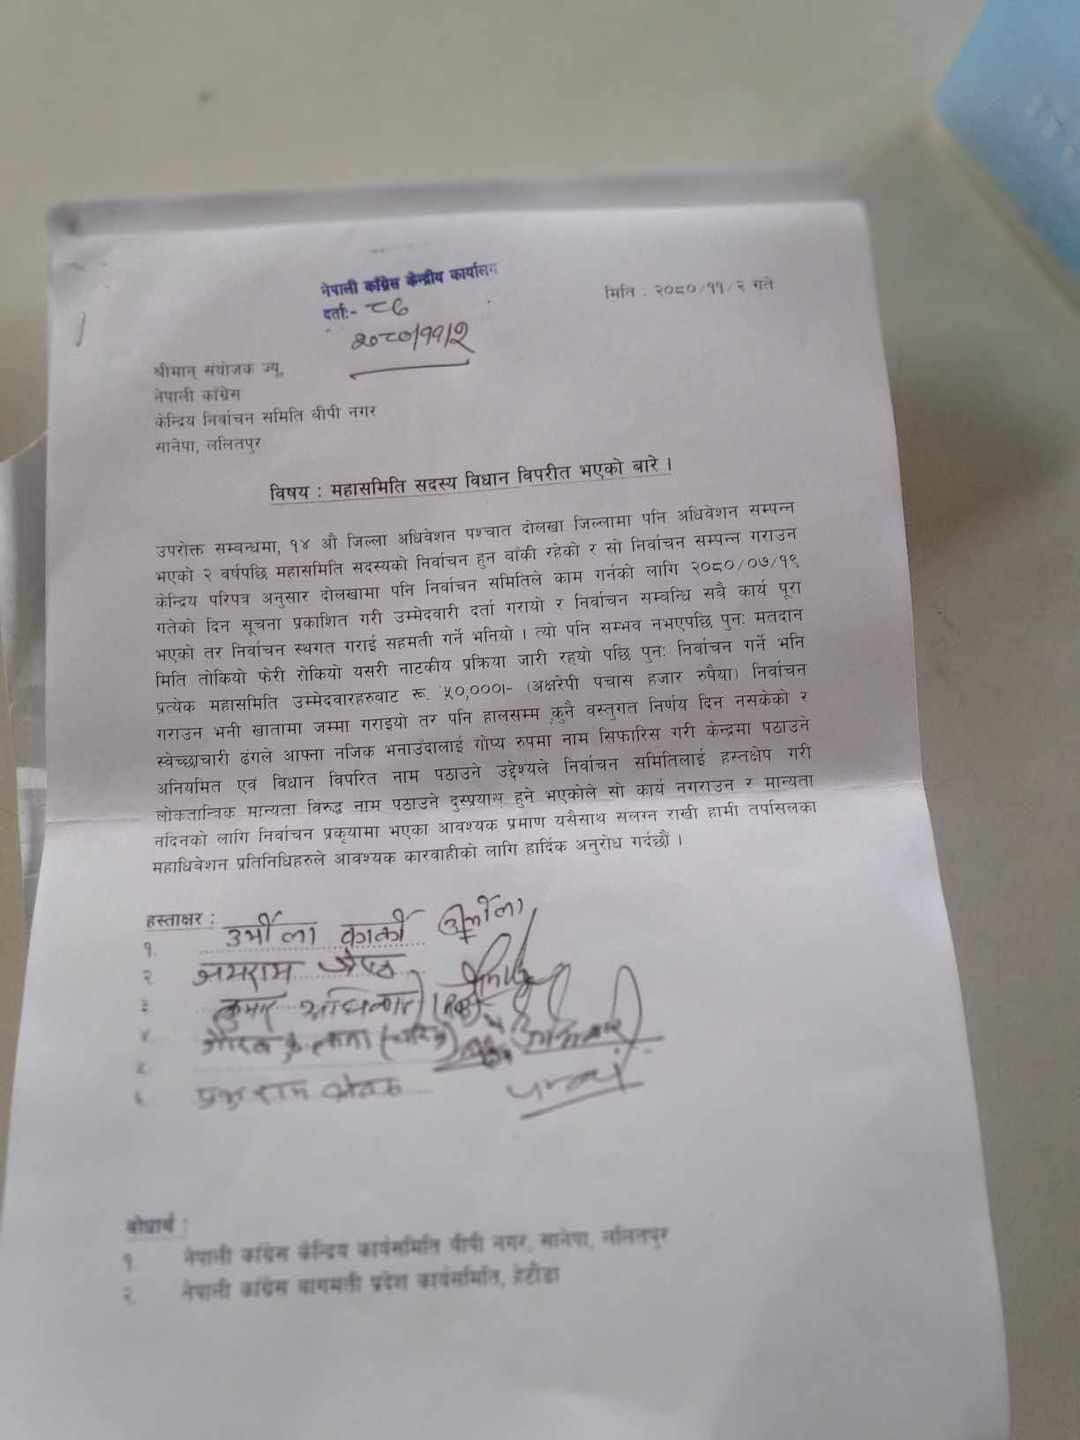 नेपाली काँग्रेस केन्द्रीय कार्यालय
दर्ताः- ८६
२०८०/११/२
मिति : २०८०/११/२ गते
श्रीमान् संयोजक ज्यू,
नेपाली काँग्रेस
केन्द्रिय निर्वाचन समिति वीपी नगर
सानेपा, ललितपुर
विषय : महासमिति सदस्य विधान विपरीत भएको बारे ।
उपरोक्त सम्वन्धमा, १४ औ जिल्ला अधिवेशन पश्चात दोलखा जिल्लामा पनि अधिवेशन सम्पन्न
भएको २ वर्षपछि महासमिति सदस्यको निर्वाचन हुन वाँकी रहेको र सो निर्वाचन सम्पन्न गराउन
केन्द्रिय परिपत्र अनुसार दोलखामा पनि निर्वाचन समितिले काम गर्नको लागि २०८०/०७/१९
गतेको दिन सूचना प्रकाशित गरी उम्मेदवारी दर्ता गरायो र निर्वाचन सम्वन्धि सवै कार्य पूरा
भएको तर निर्वाचन स्थगत गराई सहमती गर्ने भनियो । त्यो पनि सम्भव नभएपछि पुनः मतदान
मिति तोकियो फेरी रोकियो यसरी नाटकीय प्रक्रिया जारी रह्यो पछि पुनः निर्वाचन गर्ने भनि
प्रत्येक महासमिति उम्मेदवारहरुबाट रू. ५०,०००।- (अक्षरेपी पचास हजार रुपैया) निर्वाचन
गराउन भनी खातामा जम्मा गराइयो तर पनि हालसम्म कुनै वस्तुगत निर्णय दिन नसकेको र
स्वेच्छाचारी ढंगले आफ्ना नजिक भनाउँदालाई गोप्य रुपमा नाम सिफारिस गरी केन्द्रमा पठाउने
अनियमित एवं विधान विपरित नाम पठाउने उद्देश्यले निर्वाचन समितिलाई हस्तक्षेप गरी
लोकतान्त्रिक मान्यता विरुद्ध नाम पठाउने दुस्प्रयाथ हुने भएकोले सो कार्य नगराउन र मान्यता
नदिनको लागि निर्वाचन प्रकृयामा भएका आवश्यक प्रमाण यसैसाथ सलग्न राखी हामी तर्पासलका
महाधिवेशन प्रतिनिधिहरुले आवश्यक कारवाहीको लागि हार्दिक अनुरोध गर्दछौं ।
हस्ताक्षर :
१. उर्मीला कार्की उर्मिला
२ श्रेष्ठ
३ कुमार अधिकारी
४
५
६
बोधार्थ :
१. नेपाली काग्रेस केन्द्रिय कार्यसमिति वीपी नगर, सानेपा, ललितपुर
२. नेपाली काग्रेस बागमती प्रदेश कार्यसमिति, हेटौडा